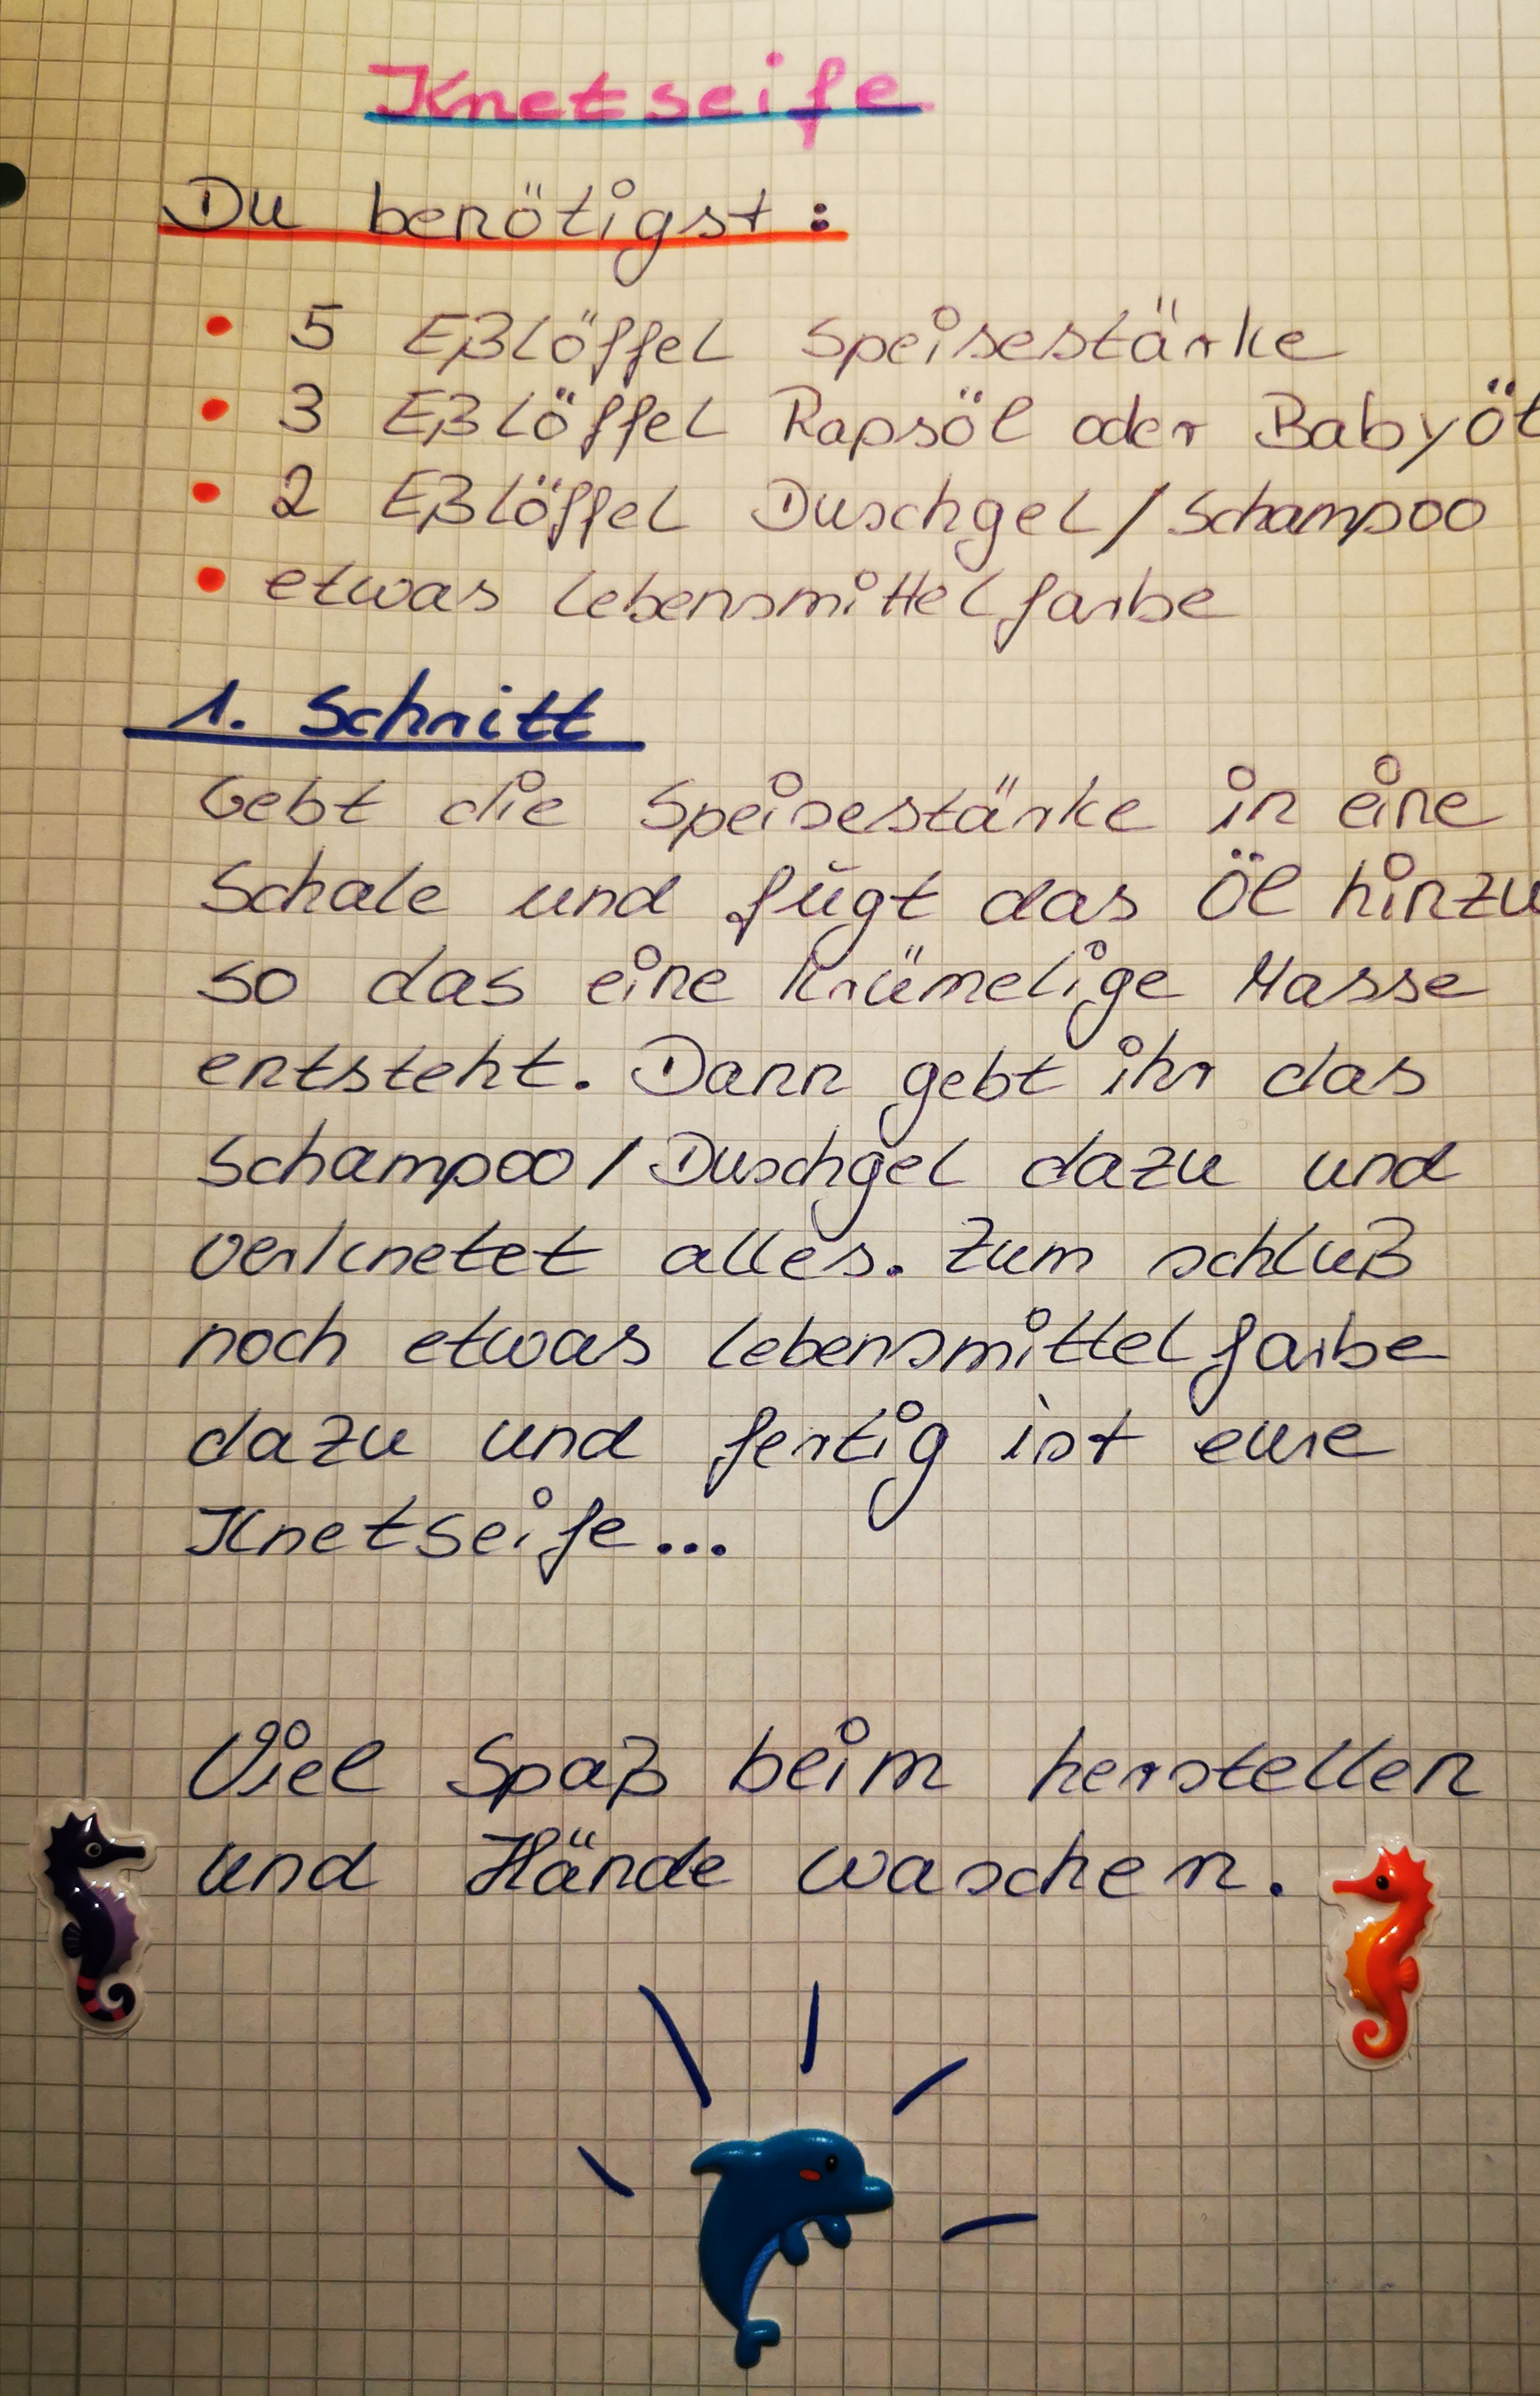 Knetseife
Du benötigst:
• 5 Eßlöffel Speisestärke
• 3 Eßlöffel Rapsöl oder Babyöl
• 2 Eßlöffel Duschgel/Schampoo
• etwas Lebensmittelfarbe
1. Schritt
Gebt die Speisestärke in eine
Schale und fügt das Öl hinzu
so das eine krümelige Masse
entsteht. Dann gebt ihr das
Schampoo/Duschgel dazu und
verknetet alles. Zum schluß
noch etwas Lebensmittelfarbe
dazu und fertig ist eure
Knetseife...
Viel Spaß beim herstellen
und Hände waschen.